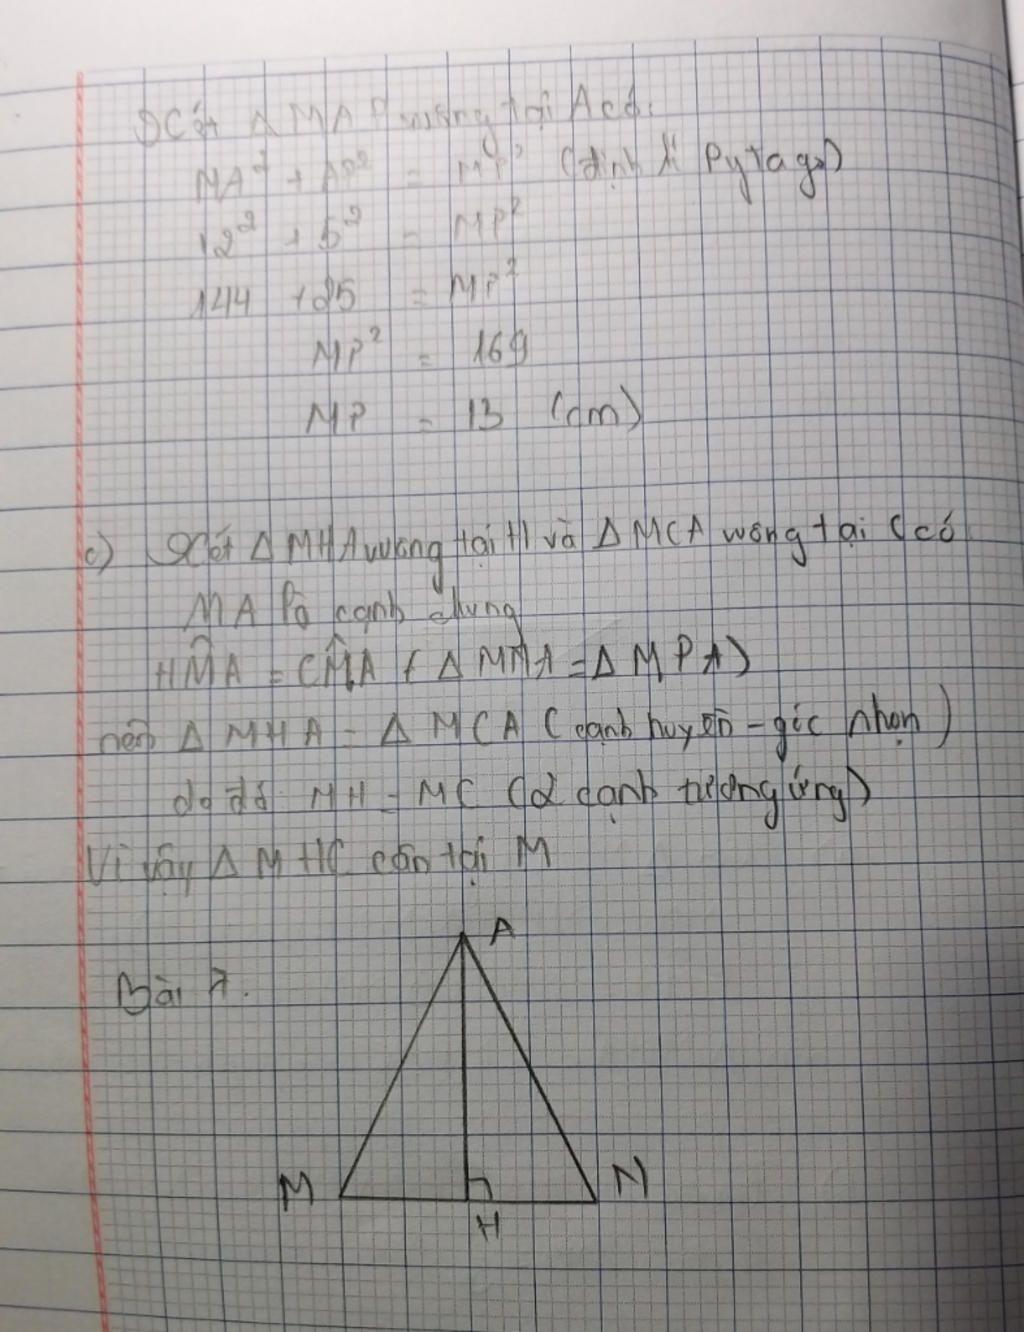 Xét Δ MAP vuông tại A có:
MA² + AP² = MP² (định lí Pytago)
12² + 5² = MP²
144 + 25 = MP²
MP² = 169
MP = 13 (cm)
c) Xét Δ MHA vuông tại H và Δ MCA vuông tại C có
MA là cạnh chung
HM̂A = CM̂A (Δ MNA = Δ MPA)
nên Δ MHA = Δ MCA (cạnh huyền - góc nhọn)
do đó MH = MC (2 cạnh tương ứng)
Vì vậy Δ MHC cân tại M
A
Bài 7.
M
N
H